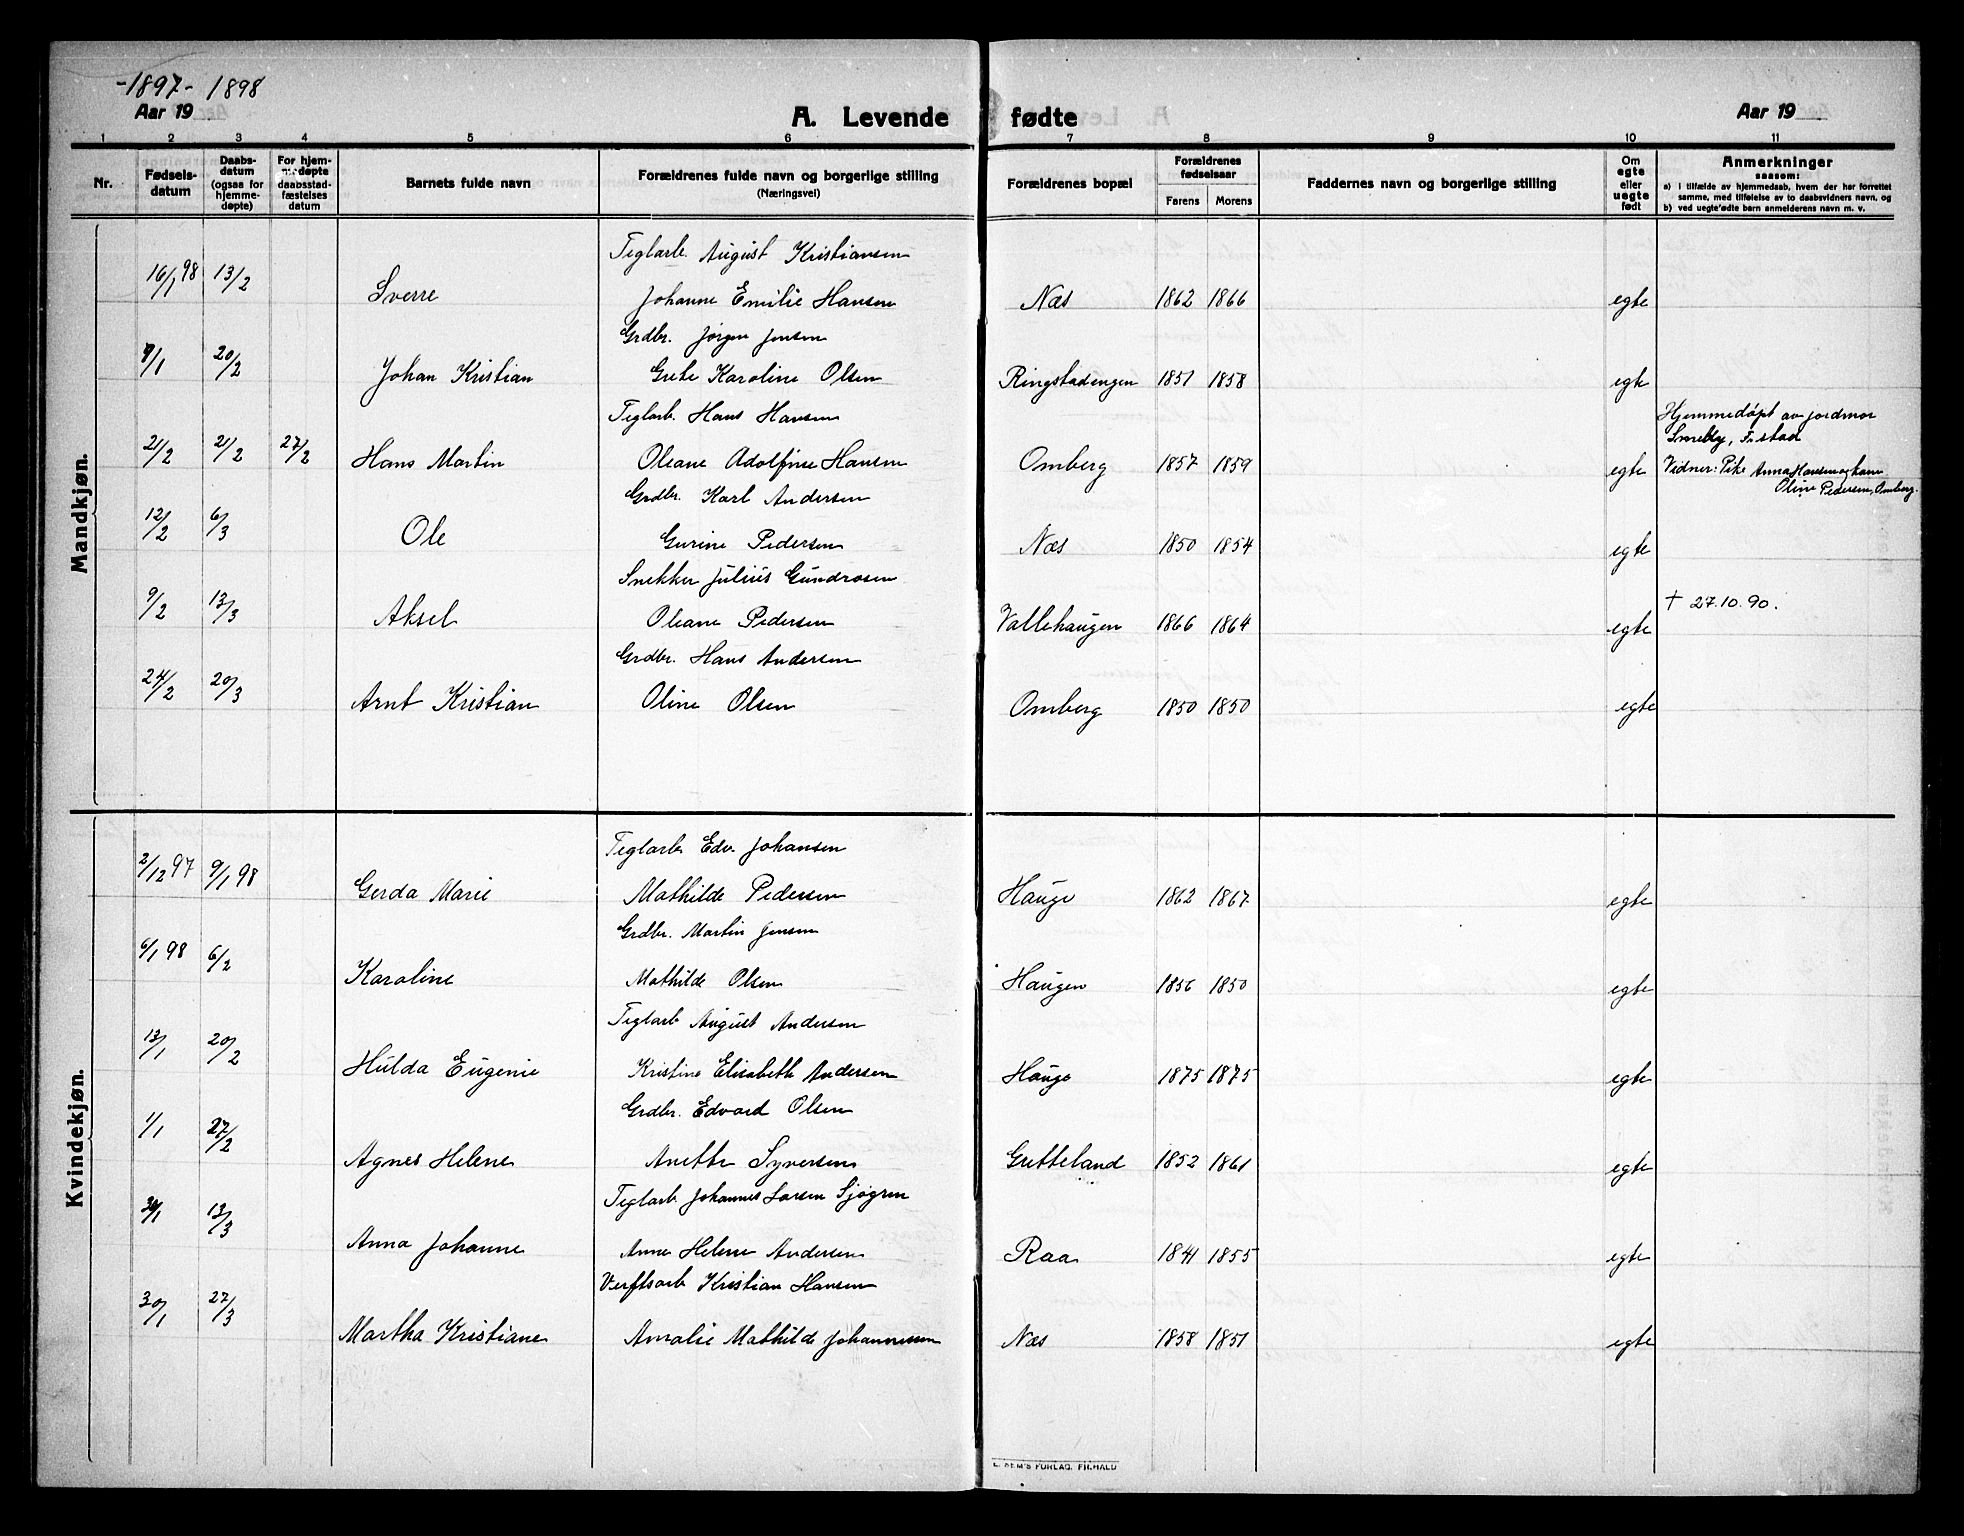 -1897- 1898
Aar 19
A. Levende fødte
Aar 19
1 2 3 4 5 6 7 8 9 10 11
Nr.
Fødsels-
datum
Daabs-
datum
(ogsaa for
hjemme-
døpte)
For hjem-
medøpte
daabsstad-
fæstelses
datum
Barnets fulde navn
Forældrenes fulde navn og borgerlige stilling
(Næringsvei)
Forældrenes bopæl
Forældrenes
fødselsaar
Farens Morens
Faddernes navn og borgerlige stilling
Om
egte
eller
uegte
født
Anmerkninger
saasom:
a) i tilfælde av hjemmedaab, hvem der har forrettet
samme, med tilføielse av to daabsvidners navn, og
b) ved uegte fødte barn anmelderens navn m. v.
Mandkjøn.
Teglarb. August Kristiansen
16/1 98 13/2 Sverre Johanne Emilie Hansen Næs 1862 1866 egte
Grdbr. Jørgen Jensen
9/1 20/2 Johan Kristian Grete Karoline Olsen Ringstadengen 1851 1858 egte
Teglarb. Hans Hansen
Hjemmedøpt av jordmor
Smeby, F.stad
21/2 21/2 27/2 Hans Martin Oleane Adolfine Hansen Omberg 1857 1859 egte Vidner: Pike Anna Hansen og kone
Oline Pedersen, Omberg.
Grdbr. Karl Andersen
12/2 6/3 Ole Gurine Pedersen Næs 1850 1854 egte
Snekker Julius Gundrosen
9/2 13/3 Aksel Oleane Pedersen Vallehaugen 1866 1864 egte † 27.10.90.
Grdbr. Hans Andersen
24/2 20/3 Arnt Kristian Oline Olsen Omberg 1850 1850 egte
Kvindekjøn.
Teglarb. Edv. Johansen
2/12 97 9/1 98 Gerda Marie Mathilde Pedersen Hauge 1862 1867 egte
Grdbr. Martin Jensen
6/1 98 6/2 Karoline Mathilde Olsen Haugen 1856 1850 egte
Teglarb August Andersen
13/1 20/2 Hulda Eugenie Kristine Elisabeth Andersen Hauge 1875 1875 egte
Grdbr. Edvard Olsen
1/1 27/2 Agnes Helene Anette Syversen Gretteland 1852 1861 egte
Teglarb. Johannes Larsen Sjøgren
13/3 Anna Johanne Anne Helene Andersen Raa 1841 1855 egte
Verftsarb Kristian Hansen
30/1 27/3 Martha Kristiane Amalie Mathilde Johannessen Næs 1858 1851 egte
E. SEM'S FORLAG, FR.HALD